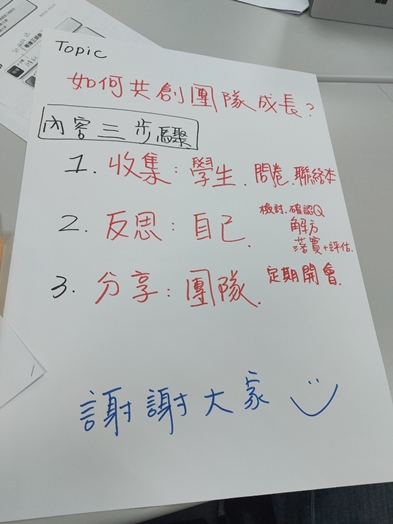 Topic
如何共創團隊成長?
內容三步驟
1. 收集: 學生. 問卷. 聯絡本
2. 反思: 自己.
檢討. 確認Q
解方
落實+評估.
3. 分享: 團隊.
定期開會.
謝謝大家